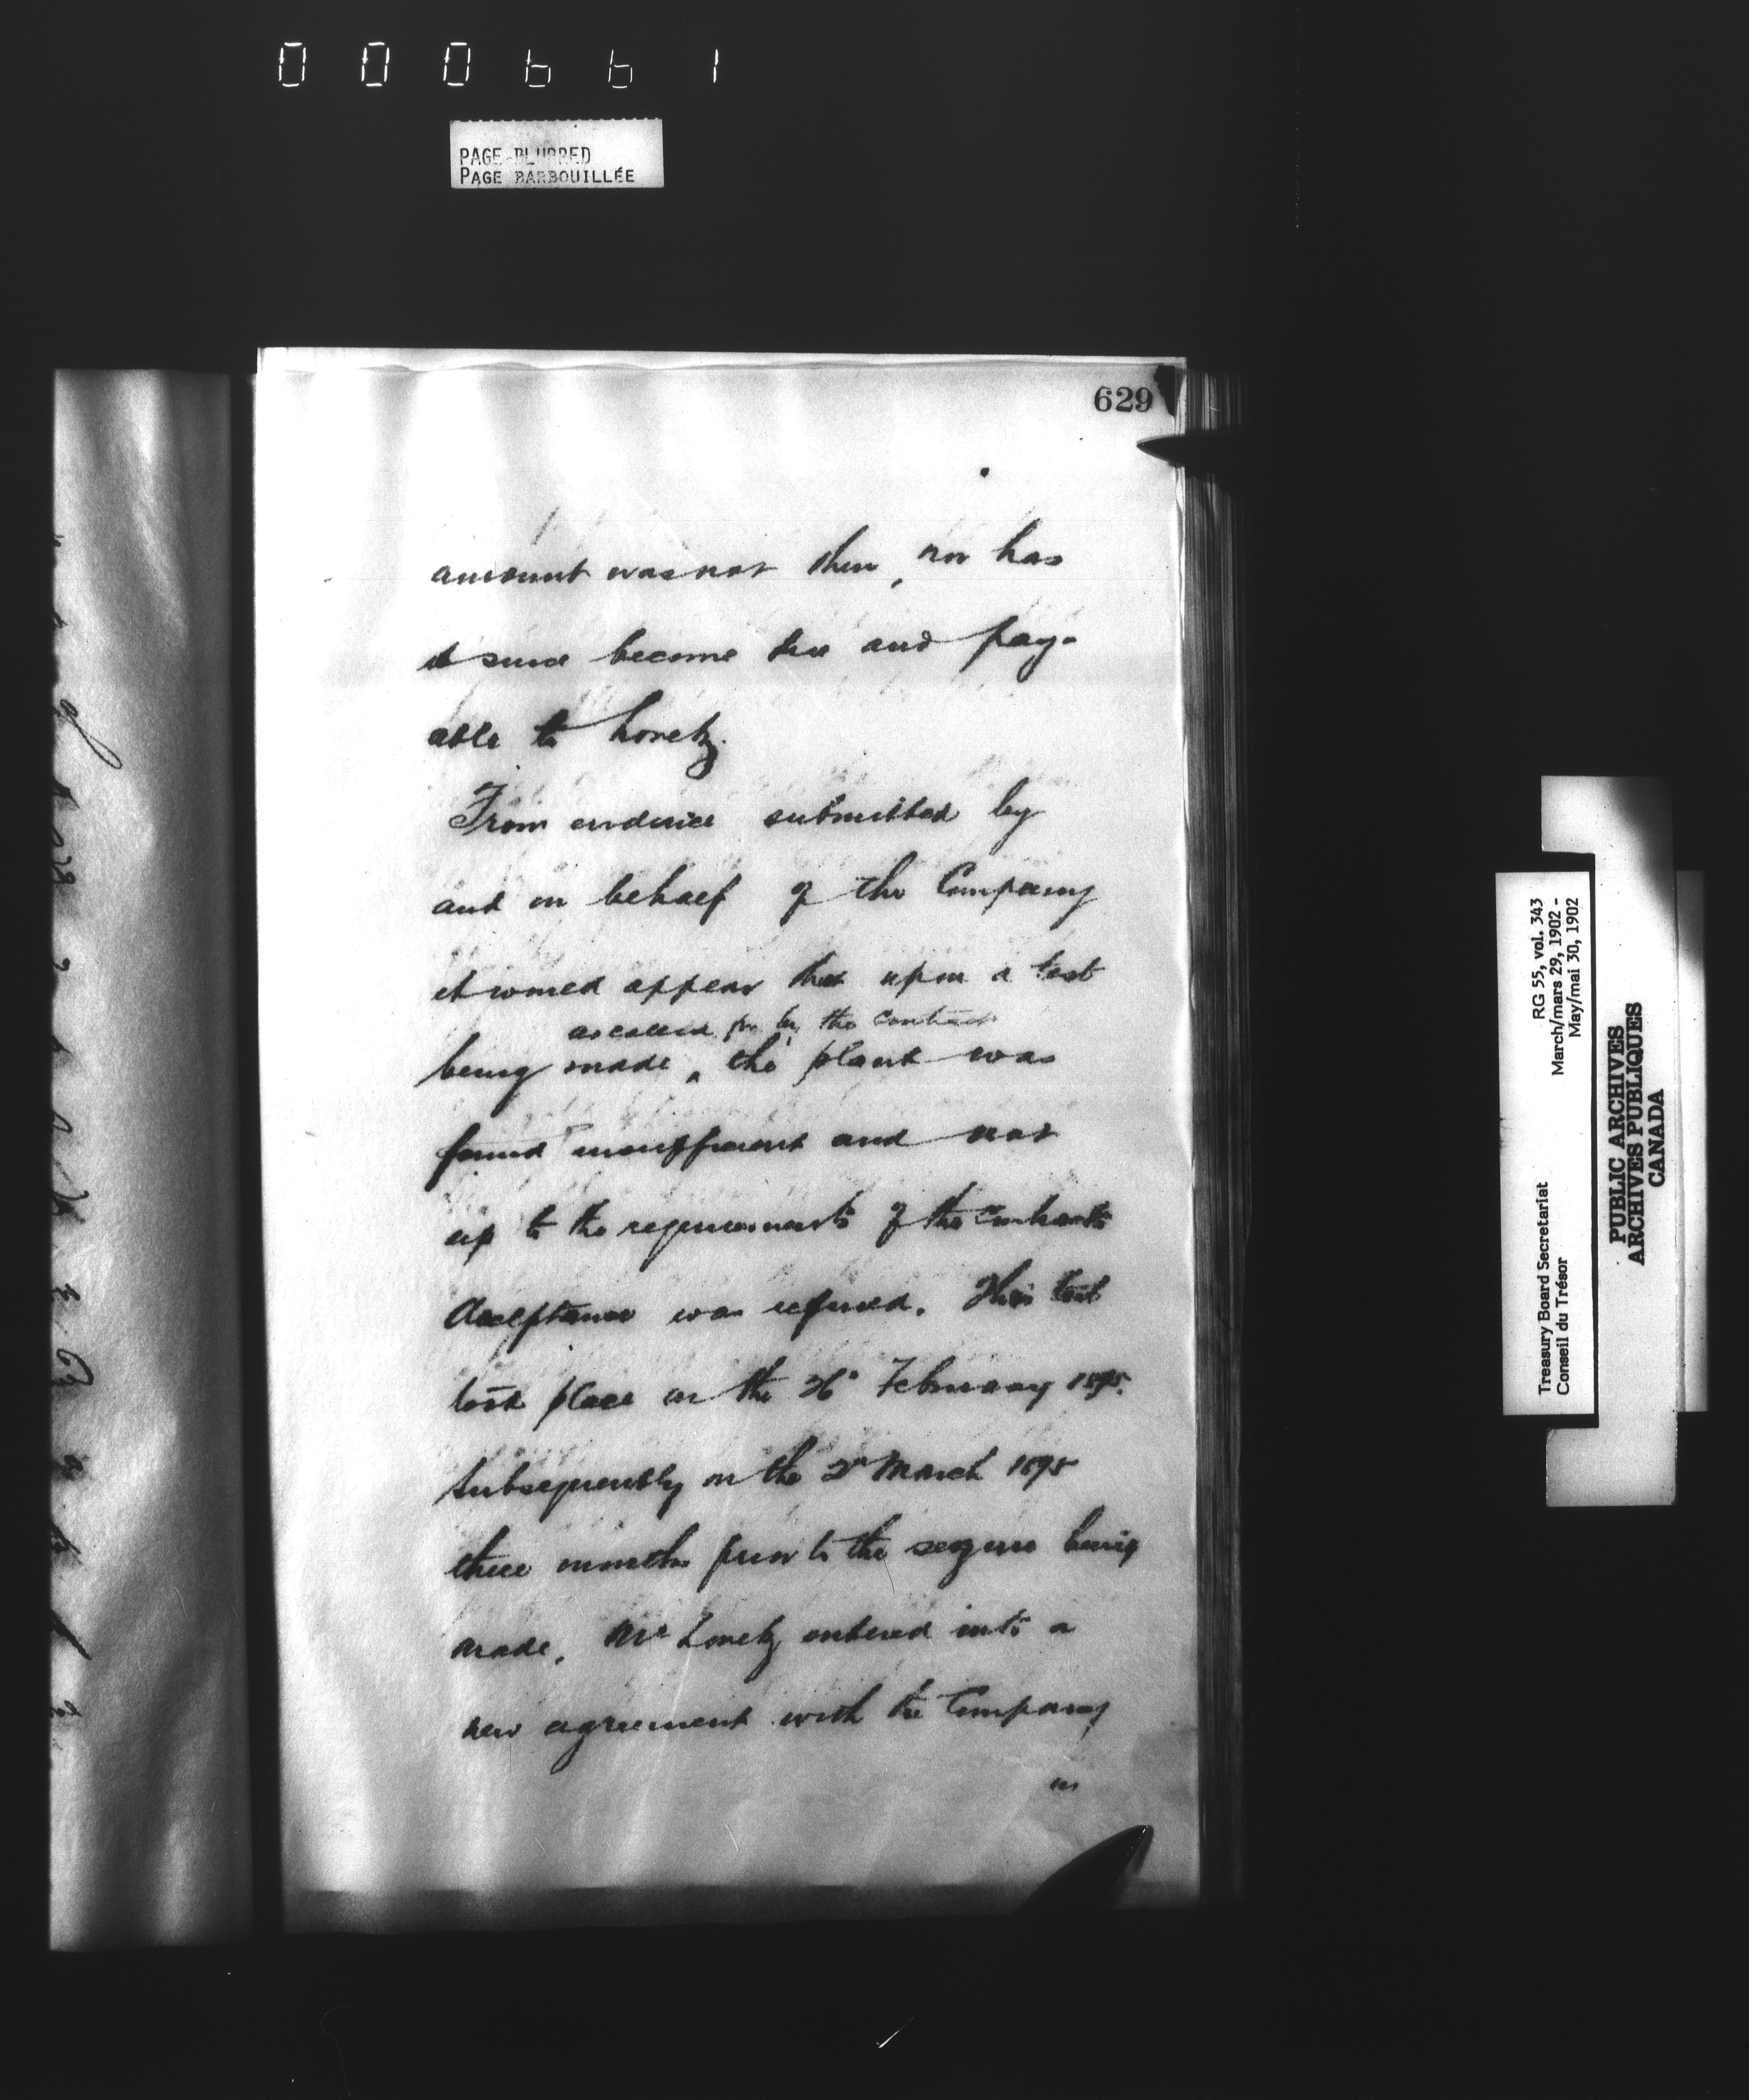 000661
PAGE BLURRED
PAGE BARBOUILLÉE
629
amount was not then, nor has
it since become due and pay-
able to Lonetz.
From evidence submitted by
and on behalf of the Company
it would appear that upon a test
as called for by the contract
being made, the plant was
found insufficient and not
up to the requirements of the contracts
Acceptance was refused. This test
took place on the 26" February 1895.
Subsequently on the 2" March 1895
three months prior to the seizure being
made, Mr Lonetz entered into a
new agreement with the Company
in
Treasury Board Secretariat
Conseil du Trésor
RG 55, vol. 343
March/mars 29, 1902 -
May/mai 30, 1902
PUBLIC ARCHIVES
ARCHIVES PUBLIQUES
CANADA